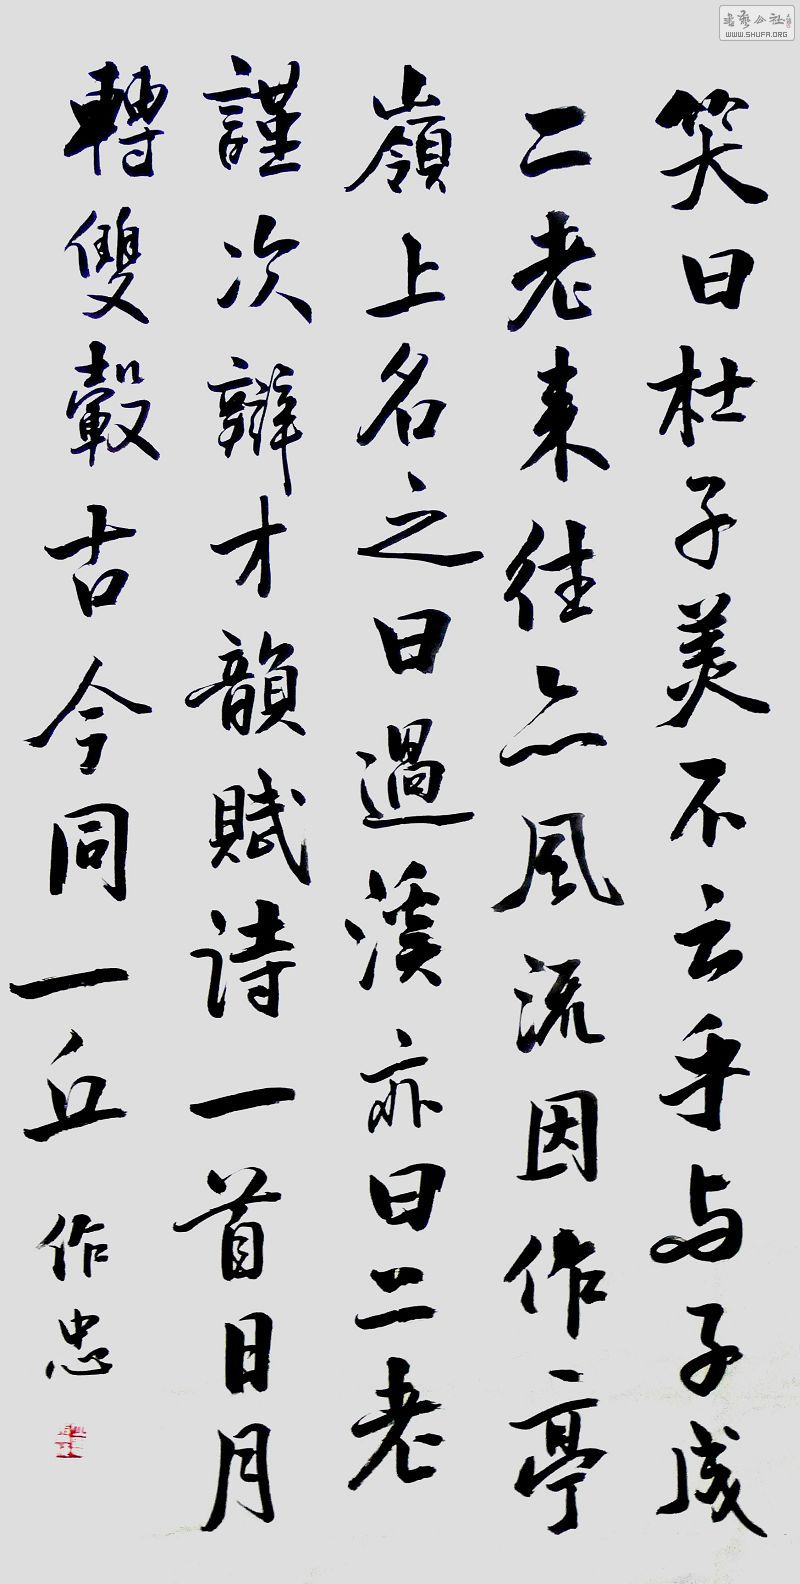 笑曰杜子美不云乎与子成
二老来往亦風流因作亭
嶺上名之曰過溪亦曰二老
謹次辯才韻賦诗一首日月
轉雙轂古今同一丘
作忠
書藝公社
WWW.SHUFA.ORG